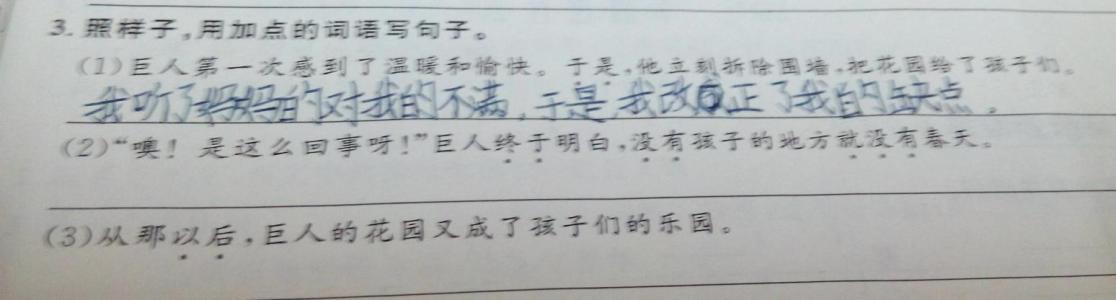 3. 照样子,用加点的词语写句子。
(1)巨人第一次感到了温暖和愉快。于是,他立刻拆除围墙,把花园给了孩子们。
我听了妈妈的对我的不满,于是我改正了我的缺点.
(2)“噢!是这么回事呀!”巨人终于明白,没有孩子的地方就没有春天。
(3)从那以后,巨人的花园又成了孩子们的乐园。